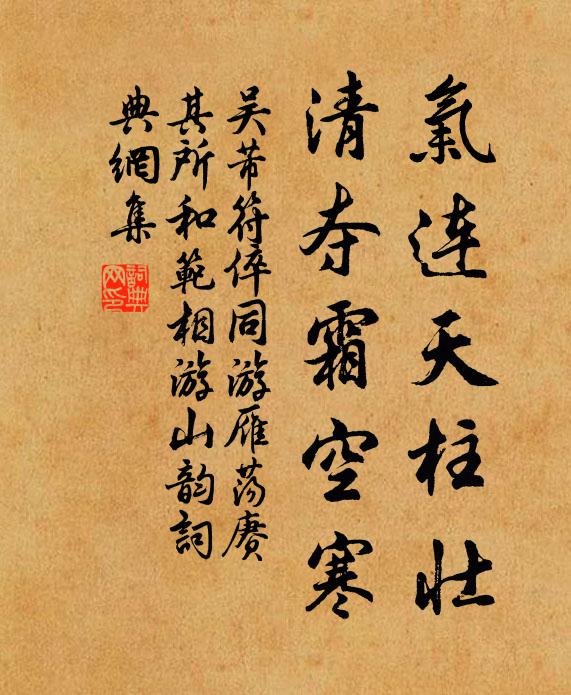 氣連天柱壯
清夺霜空寒
吴芾符倅同游雁荡赓
其所和範相游山韵詞
典網集
詞典網印